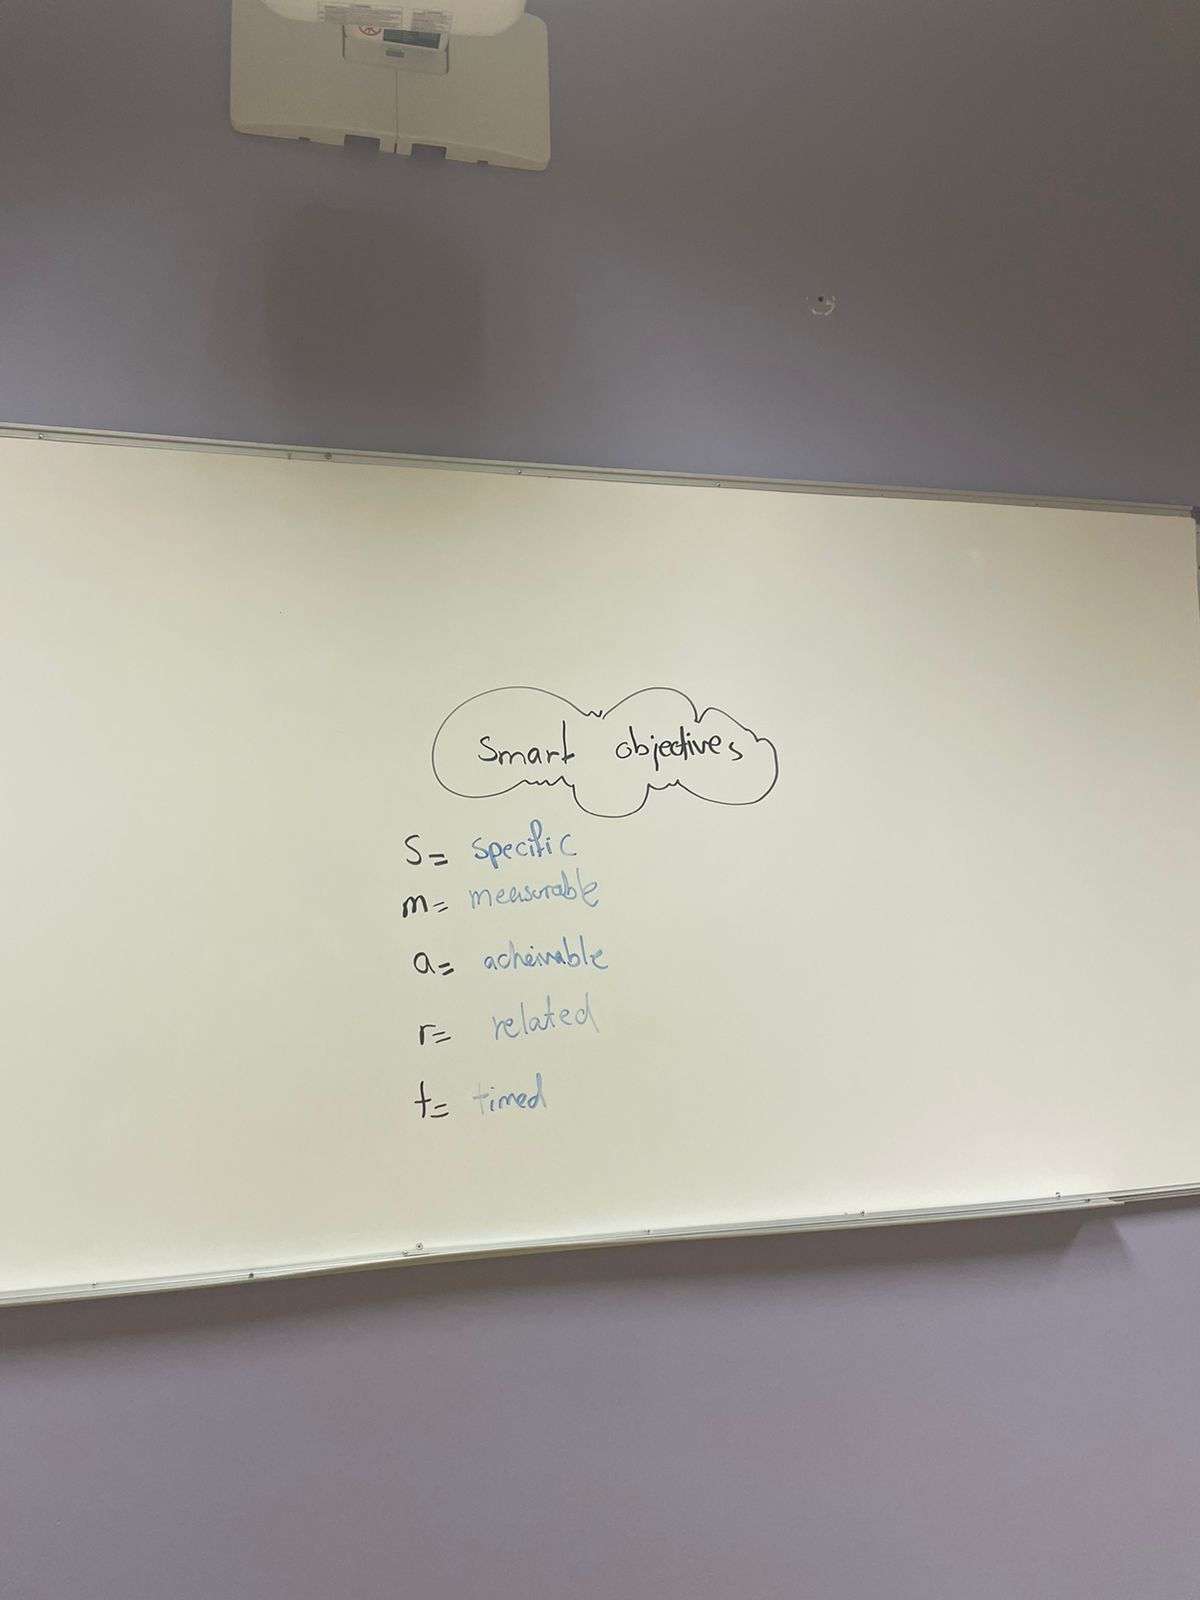 Smart objectives
S= specific
m= measurable
a= acheivable
r= related
t= timed